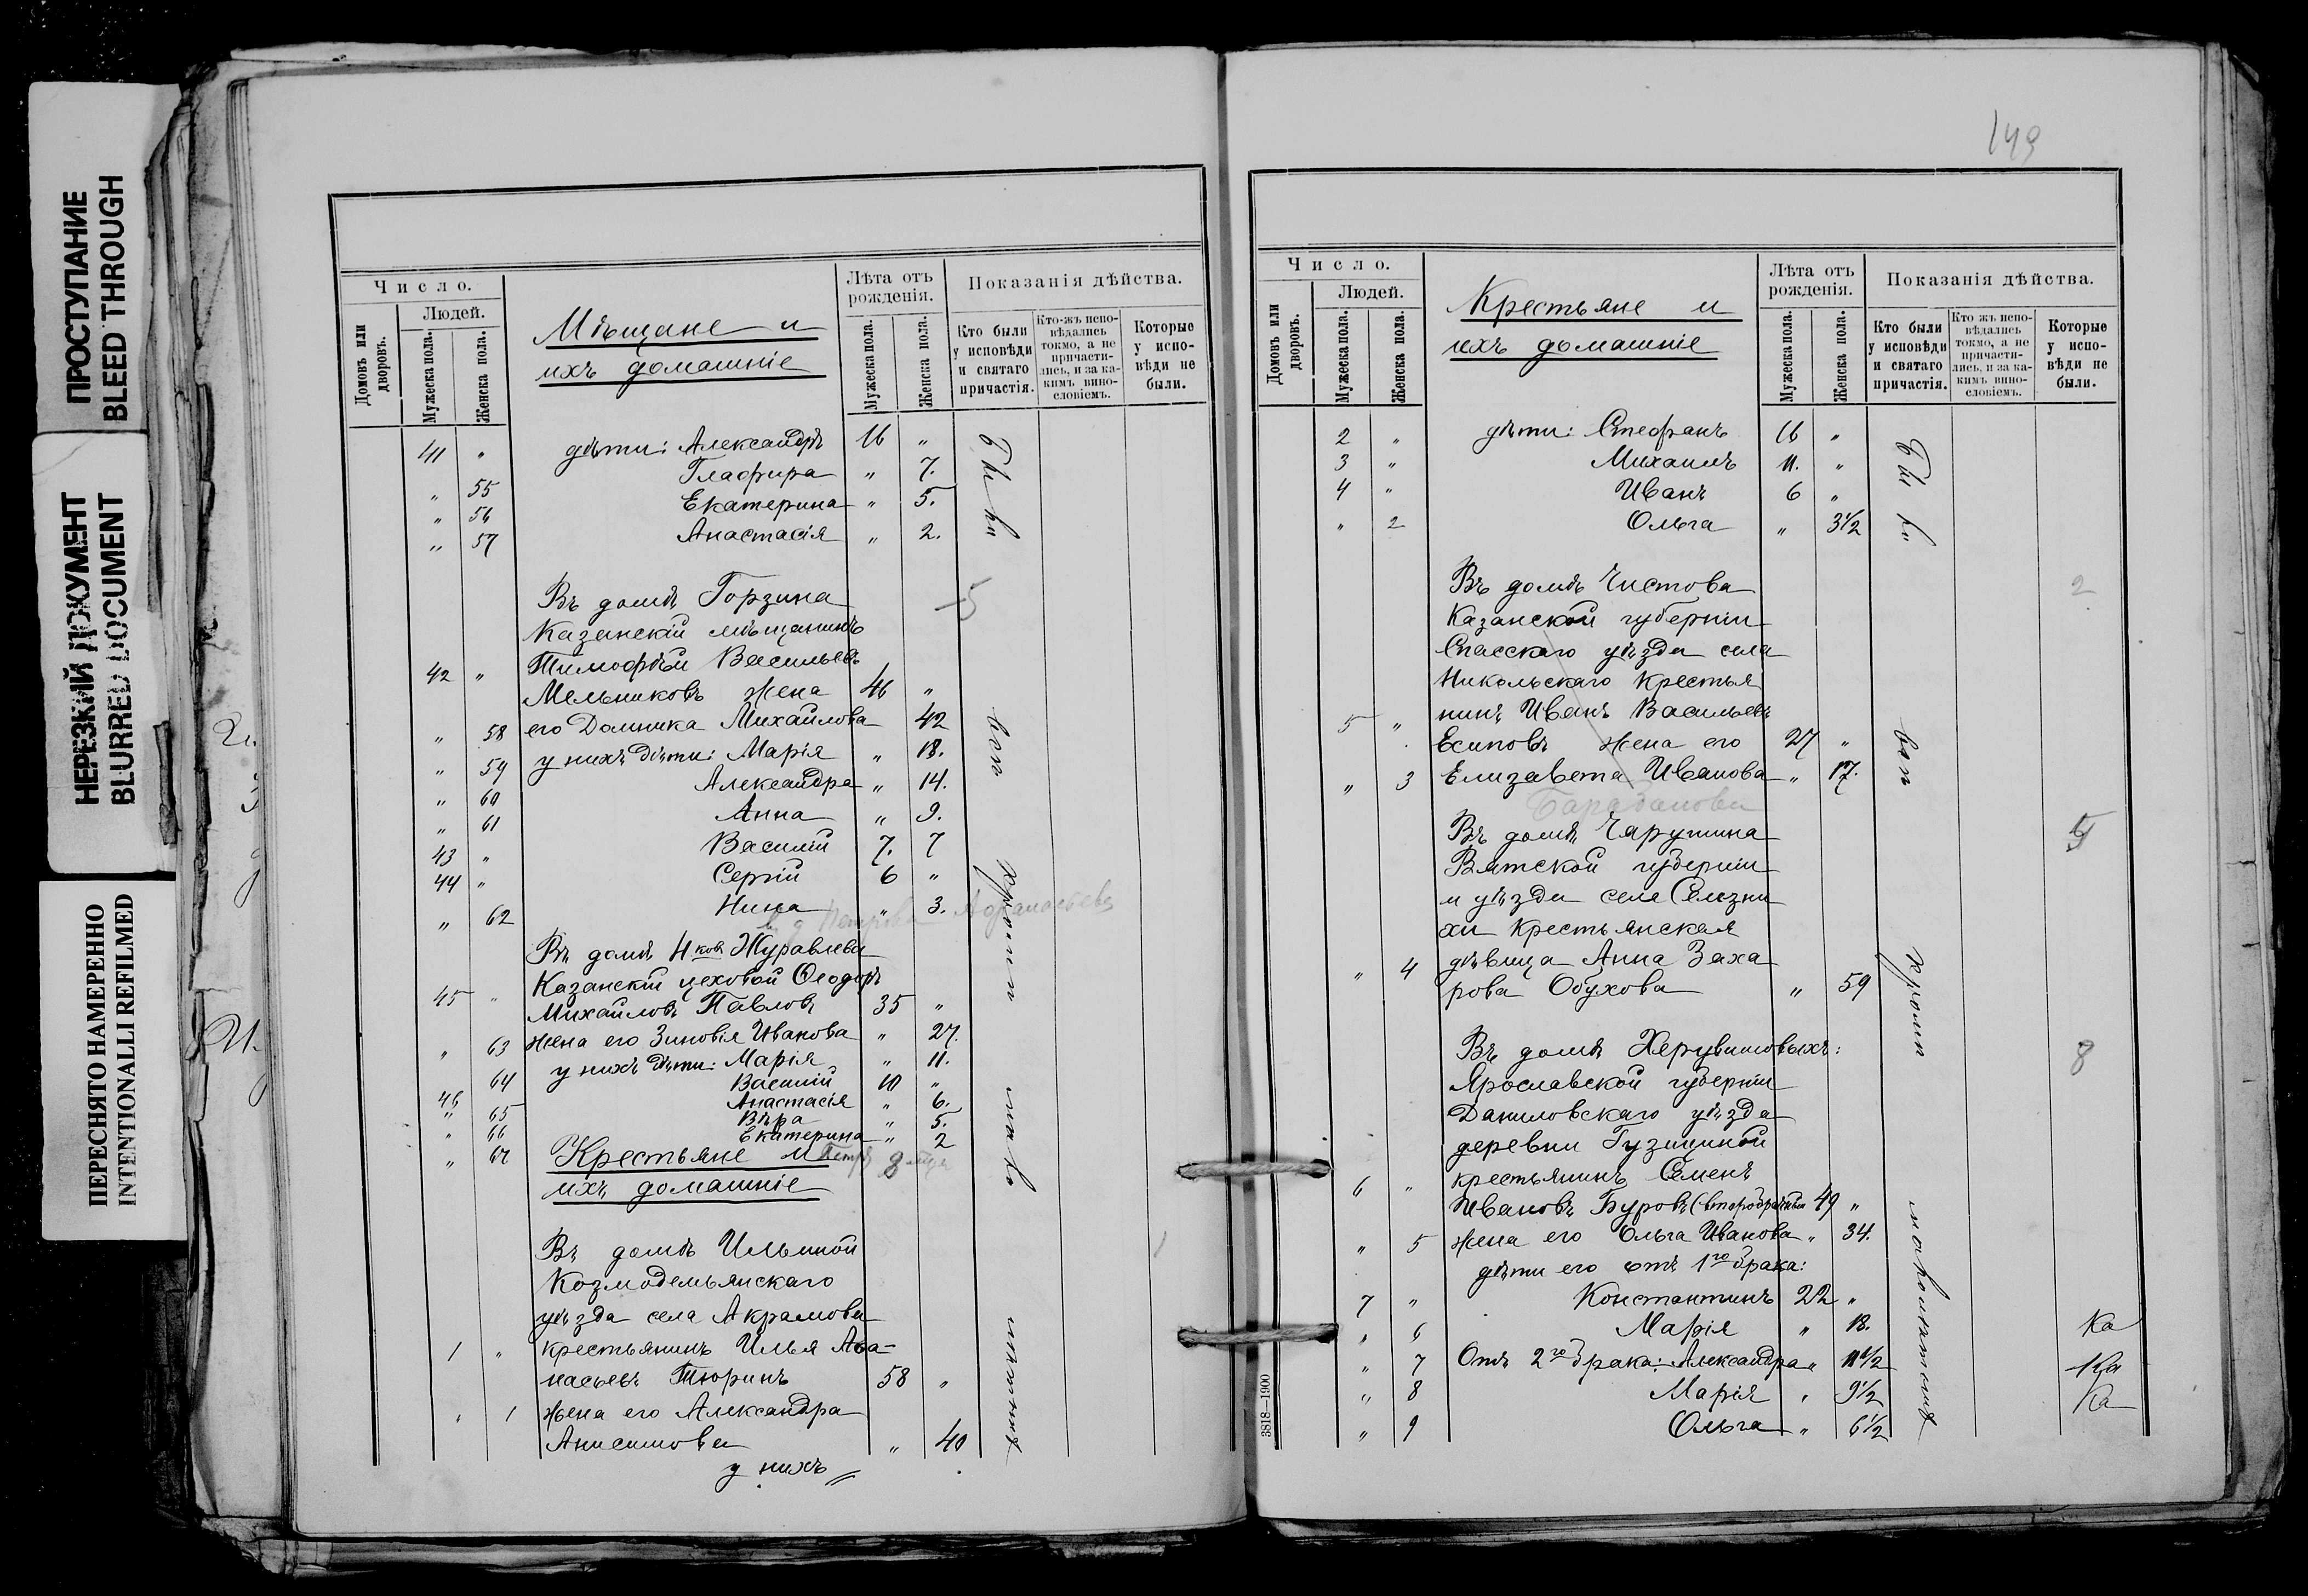 ПРОСТУПАНИЕ
BLEED THROUGH
НЕРЕЗКИЙ ДОКУМЕНТ
BLURRED DOCUMENT
ПЕРЕСНЯТО НАМЕРЕННО
INTENTIONALLI REFILMED
Число.
Домовъ или дворовъ.
Людей.
Мужеска пола.
Женска пола.
Мѣщане и
ихъ домашніе
Лѣта отъ рожденія.
Мужеска пола.
Женска пола.
Показанія дѣйства.
Кто были у исповѣди и святаго причастія.
Кто-жъ исповѣдались токмо, а не причастились, и за какимъ винословіемъ.
Которые у исповѣди не были.
41 " дѣти: Александръ 16 "
" 55 Глафира " 7.
" 56 Екатерина " 5.
" 57 Анастасія " 2.
Были
Въ домѣ Горзина
Казанскій мѣщанинъ
42 " Тимофѣй Васильевъ
Мельниковъ жена 46 "
" 58 его Домника Михайлова 42
" 59 у нихъ дѣти: Марія " 18.
" 60 Александра " 14.
" 61 Анна " 9.
43 " Василій 7. 7
44 " Сергій 6 "
" 62 Нина " 3.
всѣ
кромѣ
Въ домѣ Н-ковъ Журавлева
Казанскій цеховой Ѳеодоръ
45 " Михайловъ Павловъ 35 "
" 63 жена его Зиновія Иванова " 27.
64 у нихъ дѣти: Марія " 11.
46 Василій 10 "
" 65 Анастасія " 6.
" 66 Вѣра " 5.
" 67 Екатерина " 2
Крестьяне и
ихъ домашніе
Въ домѣ Ильиной
Козмодемьянскаго
уѣзда села Акрамова
1 " крестьянинъ Илья Аѳа-
насьевъ Тюринъ 58 "
" 1 жена его Александра
Анисимова " 40
у нихъ
149
Число.
Домовъ или дворовъ.
Людей.
Мужеска пола.
Женска пола.
Крестьяне и
ихъ домашніе
Лѣта отъ рожденія.
Мужеска пола.
Женска пола.
Показанія дѣйства.
Кто были у исповѣди и святаго причастія.
Кто жъ исповѣдались токмо, а не причастились, и за какимъ винословіемъ.
Которые у исповѣди не были.
2 " дѣти: Стефанъ 16 "
3 " Михаилъ 11. "
4 " Иванъ 6 "
" 2 Ольга " 3½
Были
Въ домѣ Чистова 2
Казанской губерніи
Спасскаго уѣзда села
Никольскаго крестья
5 " нинъ Иванъ Васильевъ
Есиповъ жена его 27 "
" 3 Елизавета Иванова " 17.
всѣ
Въ домѣ Чарушина
Вятской губерніи
и уѣзда села Селезни
хи крестьянская
" 4 дѣвица Анна Заха
рова Обухова " 59
кромѣ
Въ домѣ Херувимовыхъ: 8
Ярославской губерніи
Даниловскаго уѣзда
деревни Гузициной
6 " крестьянинъ Семенъ
Ивановъ Буровъ (второбрачный 49 "
" 5 жена его Ольга Иванова " 34.
дѣти его отъ 1го брака:
7 " Константинъ 22 "
" 6 Марія " 18.
" 7 Отъ 2го брака: Александра " 11½
" 8 Марія " 9½
" 9 Ольга " 6½
малолѣтнихъ
Ка
Ка
Ка
3818—1900